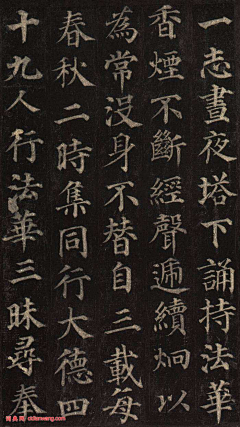 一志晝夜塔下誦持法華
香煙不斷經聲遞續炯以
為常沒身不替自三載每
春秋二時集同行大德四
十九人行法華三昧尋奉